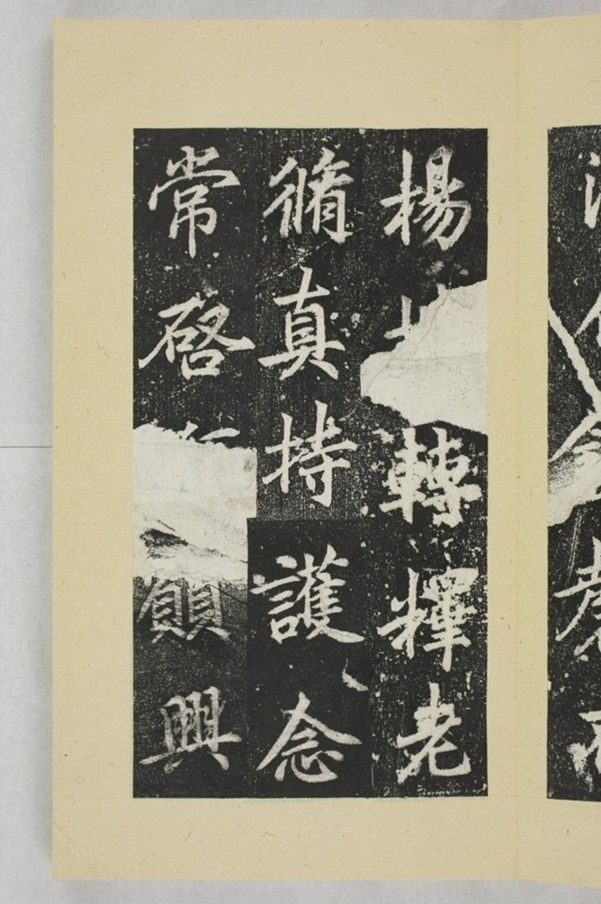 楊轉輝老
脩真持護念
常啓願興